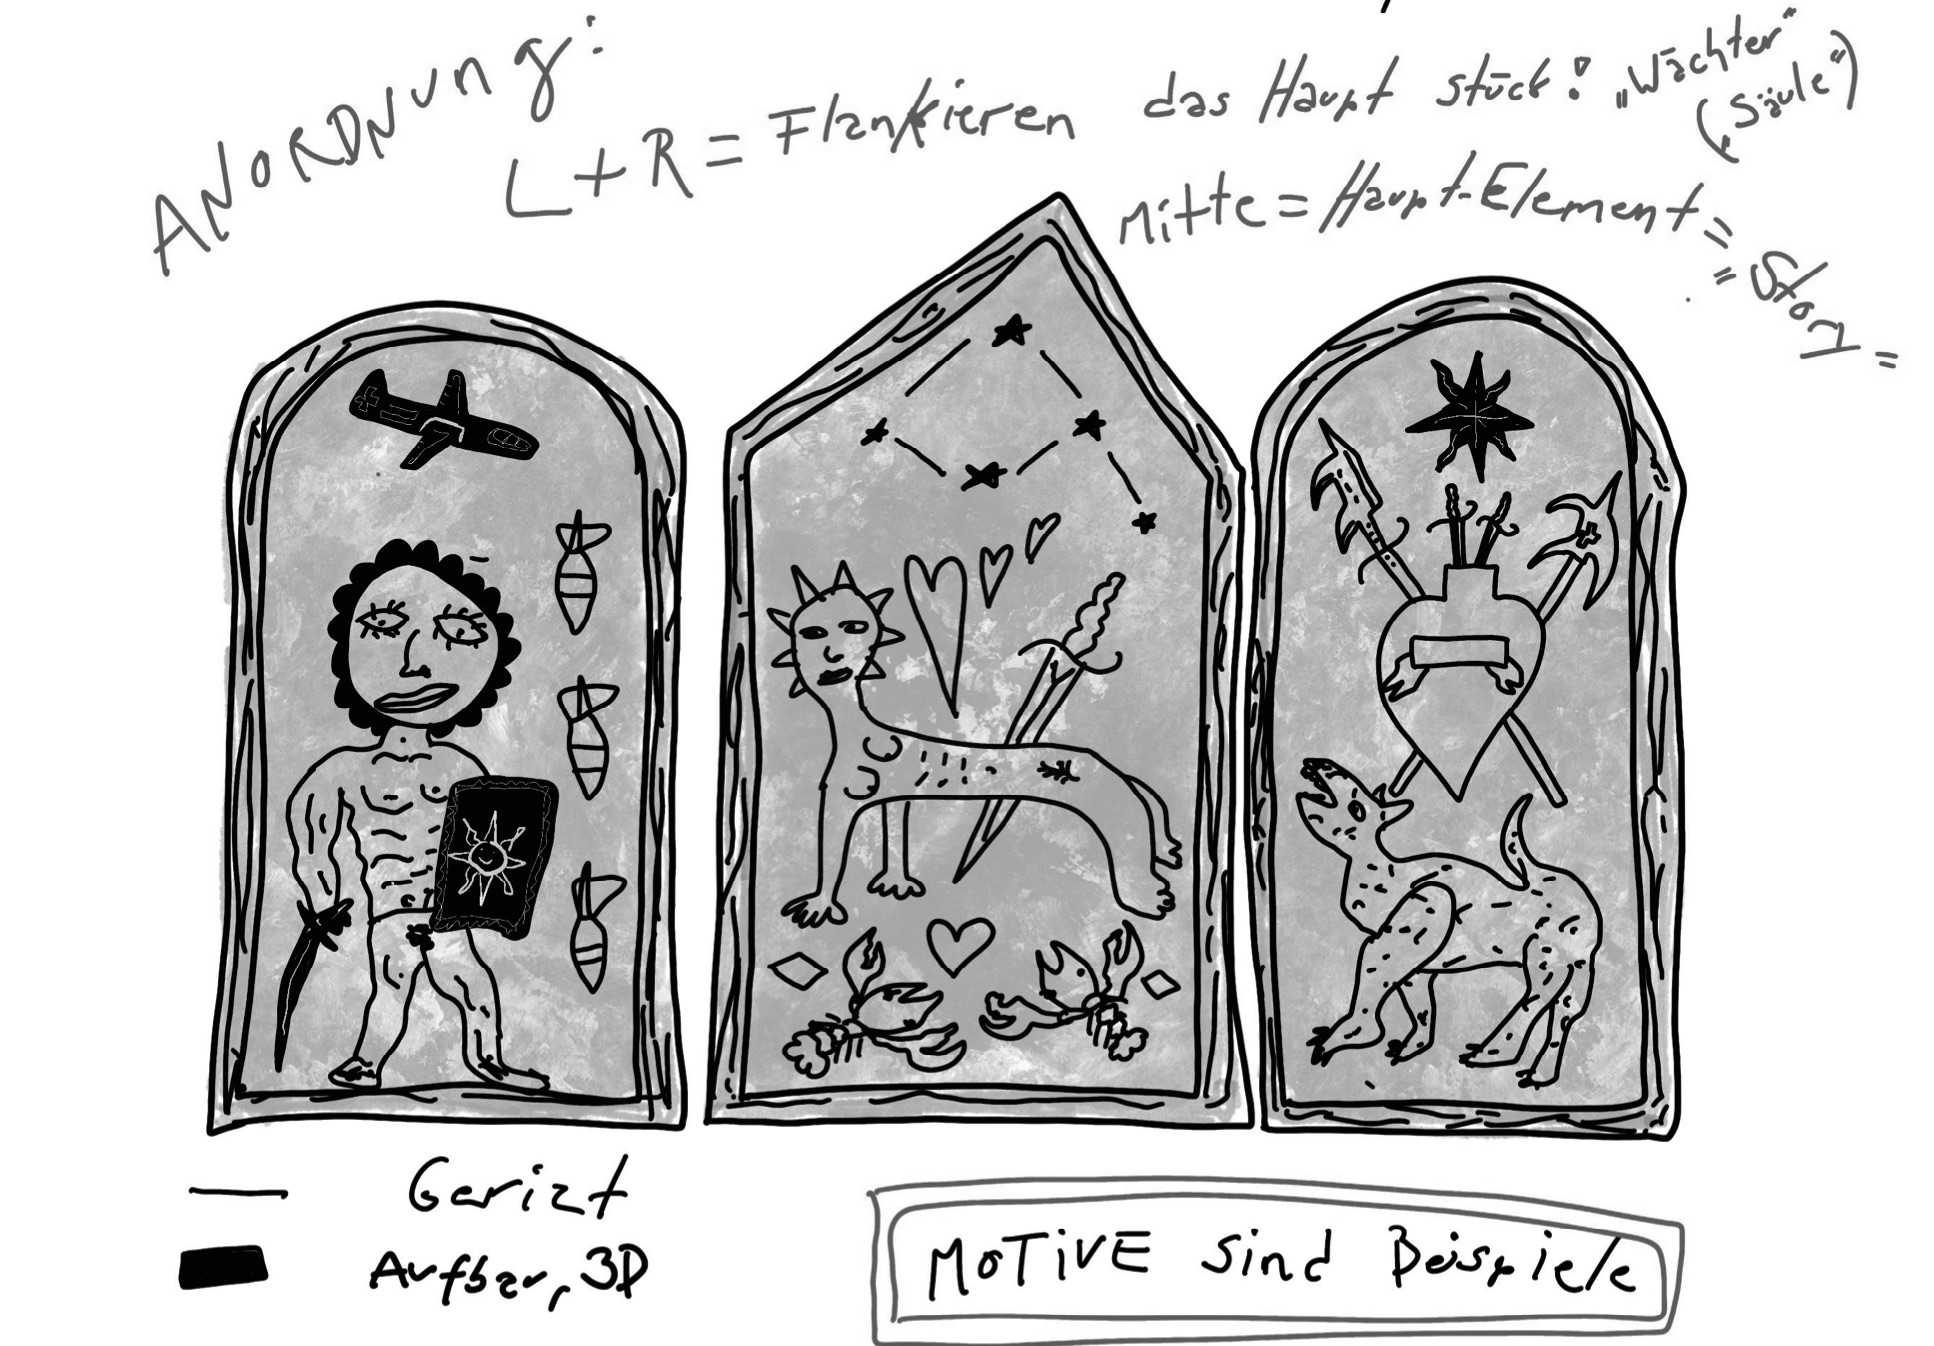 ANORDNung:
L + R = Flankieren das Haupt stück! „Wächter“
(„Säule“)
Mitte = Haupt-Element =
= Story =
Gerizt
Aufbau, 3D
MOTiVE sind Beispiele